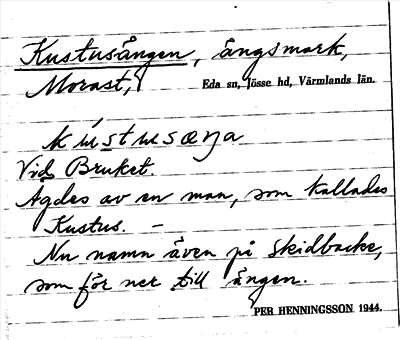 Kustusängen, ängsmark,
Morast, Eda sn, Jösse hd, Värmlands län.
kùstusæŋa
Vid Bruket.
Ägdes av en man, som kallades
Kustus. –
Nu namn även på skidbacke,
som för ner till ängen.
PER HENNINGSSON 1944.